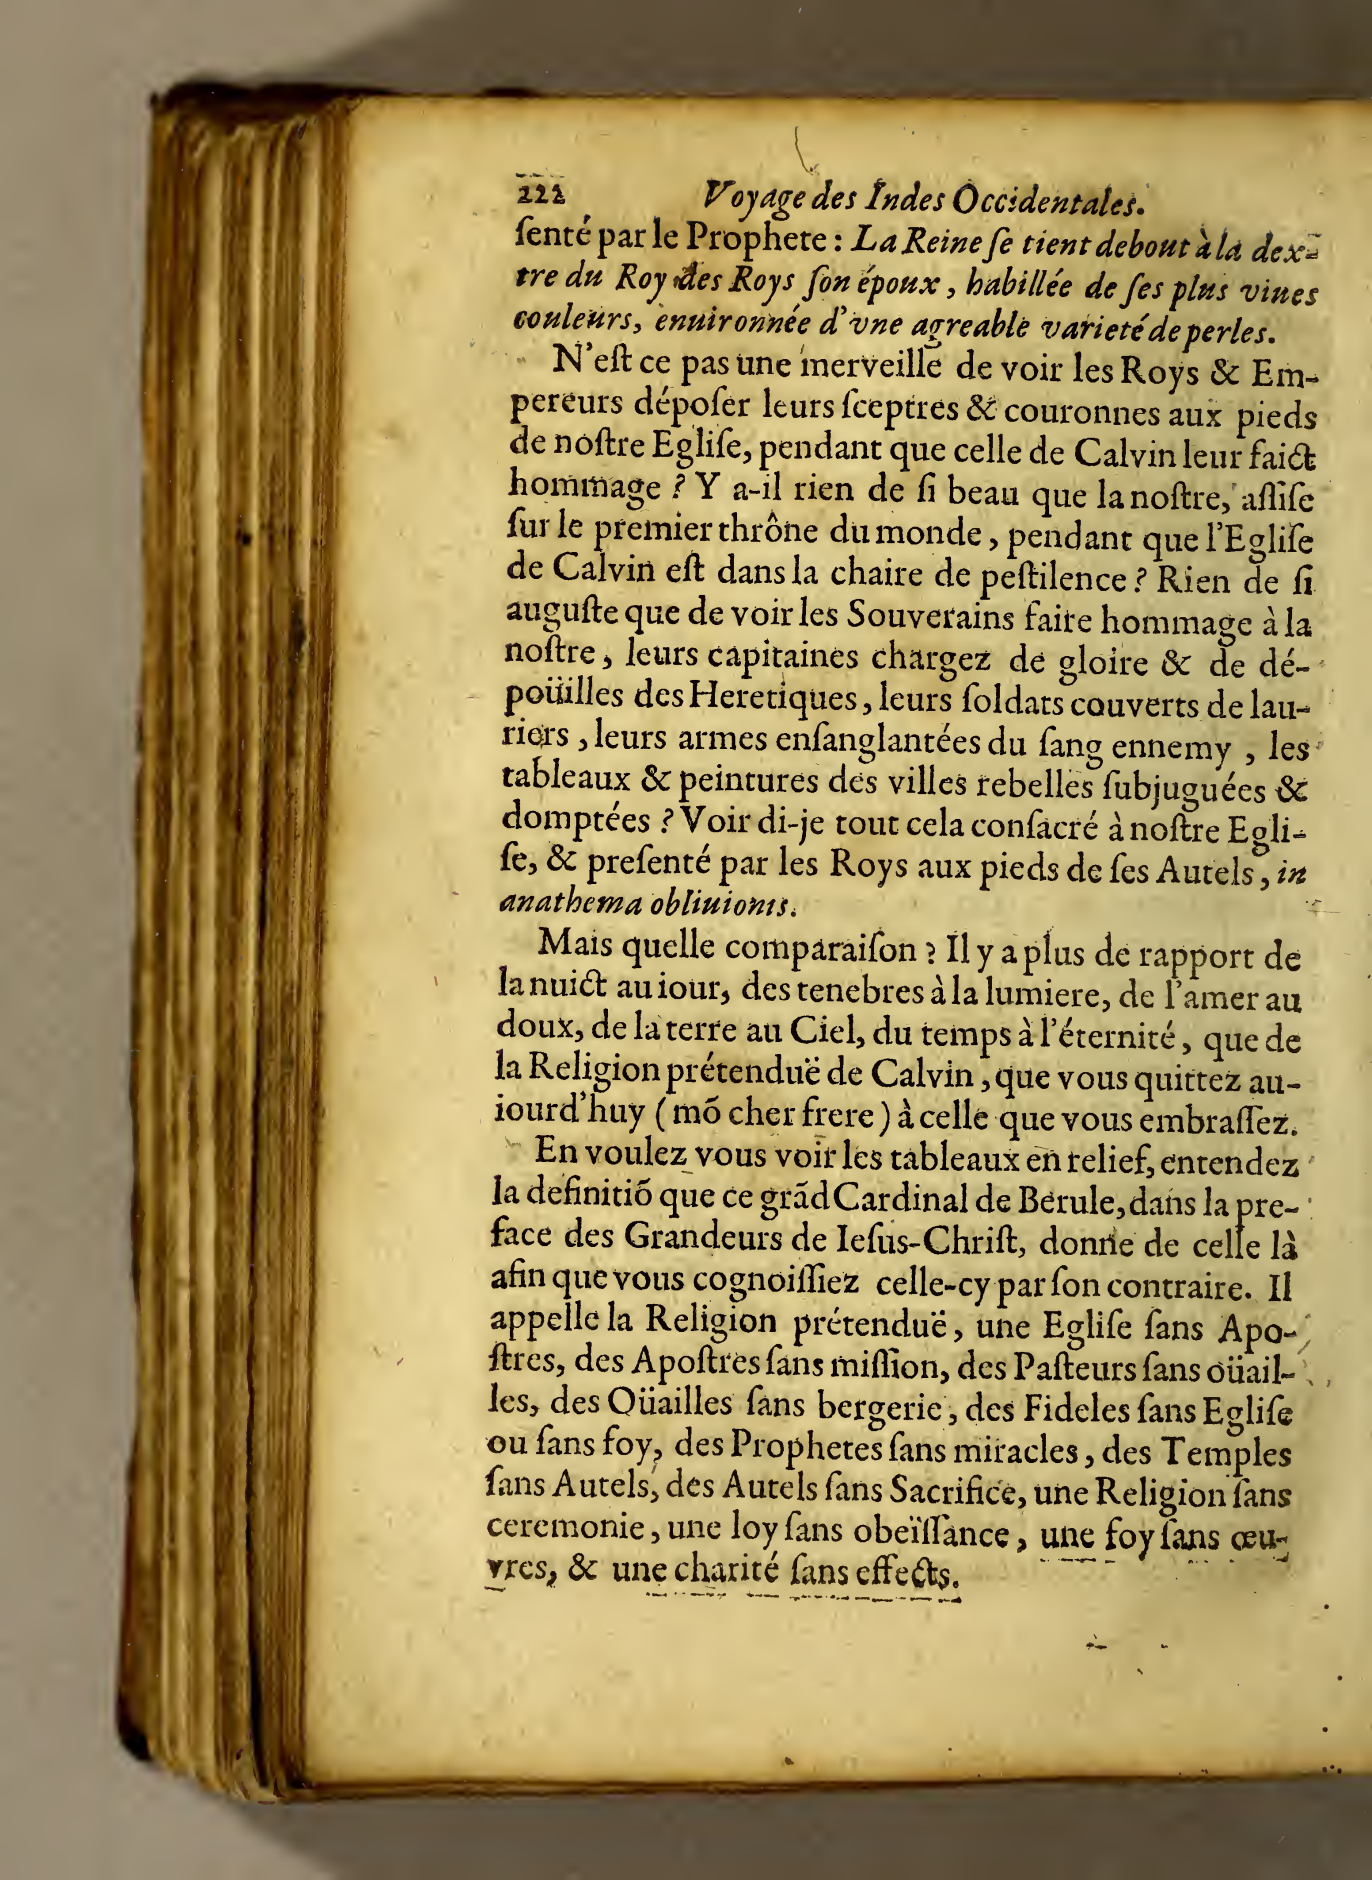 222 Voyage des Indes Occidentales.
ſenté par le Prophete : La Reine ſe tient debout à la dex-
tre du Roy des Roys ſon époux, habillée de ſes plus viues
couleurs, enuironnée d'vne agreable varieté de perles.
N'eſt ce pas une merveille de voir les Roys & Em-
pereurs dépoſer leurs ſceptres & couronnes aux pieds
de noſtre Egliſe, pendant que celle de Calvin leur faict
hommage ? Y a-il rien de ſi beau que la noſtre, aſſiſe
ſur le premier thrône du monde, pendant que l'Egliſe
de Calvin eſt dans la chaire de peſtilence ? Rien de ſi
auguſte que de voir les Souverains faire hommage à la
noſtre, leurs capitaines chargez de gloire & de dé-
poüilles des Heretiques, leurs ſoldats couverts de lau-
riers, leurs armes enſanglantées du ſang ennemy, les
tableaux & peintures des villes rebelles ſubjuguées &
domptées ? Voir di-je tout cela conſacré à noſtre Egli-
ſe, & preſenté par les Roys aux pieds de ſes Autels, in
anathema obliuionis.
Mais quelle comparaiſon ? Il y a plus de rapport de
la nuict au iour, des tenebres à la lumiere, de l'amer au
doux, de la terre au Ciel, du temps à l'éternité, que de
la Religion prétenduë de Calvin, que vous quittez au-
iourd'huy (mõ cher frere) à celle que vous embraſſez.
En voulez vous voir les tableaux en relief, entendez
la definitiõ que ce grãd Cardinal de Berule, dans la pre-
face des Grandeurs de Ieſus-Chriſt, donne de celle là
afin que vous cognoiſſiez celle-cy par ſon contraire. Il
appelle la Religion prétenduë, une Egliſe ſans Apo-
ſtres, des Apoſtres ſans miſſion, des Paſteurs ſans oüail-
les, des Oüailles ſans bergerie, des Fideles ſans Egliſe
ou ſans foy, des Prophetes ſans miracles, des Temples
ſans Autels, des Autels ſans Sacrifice, une Religion ſans
ceremonie, une loy ſans obeïſſance, une foy ſans œu-
vres, & une charité ſans effects.